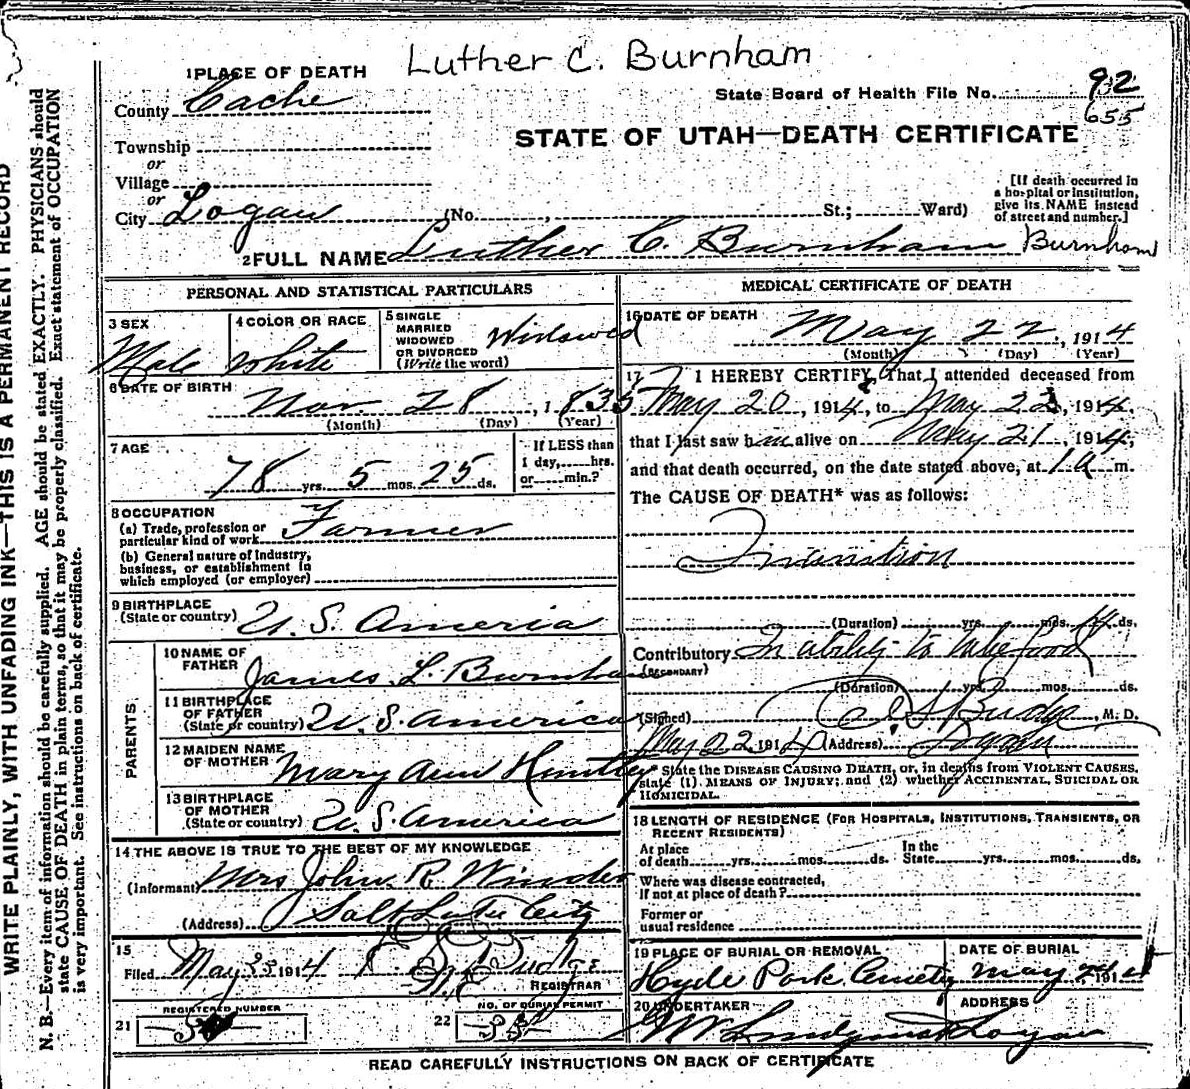 Luther C. Burnham
1 PLACE OF DEATH
County Cache
State Board of Health File No. 92
655
STATE OF UTAH—DEATH CERTIFICATE
Township
or
Village
or
City Logan (No. , St.; Ward)
[If death occurred in a hospital or institution, give its NAME instead of street and number.]
2 FULL NAME Luther C. Burnham Burnham
PERSONAL AND STATISTICAL PARTICULARS
3 SEX
Male
4 COLOR OR RACE
White
5 SINGLE
MARRIED
WIDOWED
OR DIVORCED
(Write the word)
Widowed
6 DATE OF BIRTH
Nov. 28, 1835
(Month) (Day) (Year)
7 AGE
78 yrs. 5 mos. 25 ds.
If LESS than
1 day, hrs.
or min.?
8 OCCUPATION
(a) Trade, profession or
particular kind of work Farmer
(b) General nature of Industry,
business, or establishment in
which employed (or employer)
9 BIRTHPLACE
(State or country) U. S. America
PARENTS
10 NAME OF
FATHER James L. Burnham
11 BIRTHPLACE
OF FATHER
(State or country) U. S. America
12 MAIDEN NAME
OF MOTHER Mary Ann Huntley
13 BIRTHPLACE
OF MOTHER
(State or country) U. S. America
14 THE ABOVE IS TRUE TO THE BEST OF MY KNOWLEDGE
(Informant) Mrs John R. Winder
(Address) Salt Lake City
15
Filed May 23 1914
REGISTRAR
REGISTERED NUMBER
21
NO. OF BURIAL PERMIT
22
MEDICAL CERTIFICATE OF DEATH
16 DATE OF DEATH
May 22, 1914
(Month) (Day) (Year)
17 I HEREBY CERTIFY, That I attended deceased from
May 20, 1914, to May 22, 1914,
that I last saw him alive on May 21, 1914,
and that death occurred, on the date stated above, at 1 a m.
The CAUSE OF DEATH* was as follows:
Inanition
(Duration) yrs. mos. 14 ds.
Contributory Inability to take food
(SECONDARY)
(Duration) yrs. mos. ds.
(Signed) Budge, M. D.
May 22, 1914 (Address) Logan
* State the DISEASE CAUSING DEATH, or, in deaths from VIOLENT CAUSES,
state (1) MEANS OF INJURY; and (2) whether ACCIDENTAL, SUICIDAL OR
HOMICIDAL.
18 LENGTH OF RESIDENCE (FOR HOSPITALS, INSTITUTIONS, TRANSIENTS, OR
RECENT RESIDENTS)
At place
of death yrs. mos. ds.
In the
State yrs. mos. ds.
Where was disease contracted,
if not at place of death?
Former or
usual residence
19 PLACE OF BURIAL OR REMOVAL
Hyde Park Cemetery
DATE OF BURIAL
May 24 1914
20 UNDERTAKER
Lindquist
ADDRESS
Logan
READ CAREFULLY INSTRUCTIONS ON BACK OF CERTIFICATE
WRITE PLAINLY, WITH UNFADING INK—THIS IS A PERMANENT RECORD
N. B.—Every item of information should be carefully supplied. AGE should be stated EXACTLY. PHYSICIANS should
state CAUSE OF DEATH in plain terms, so that it may be properly classified. Exact statement of OCCUPATION
is very important. See instructions on back of certificate.